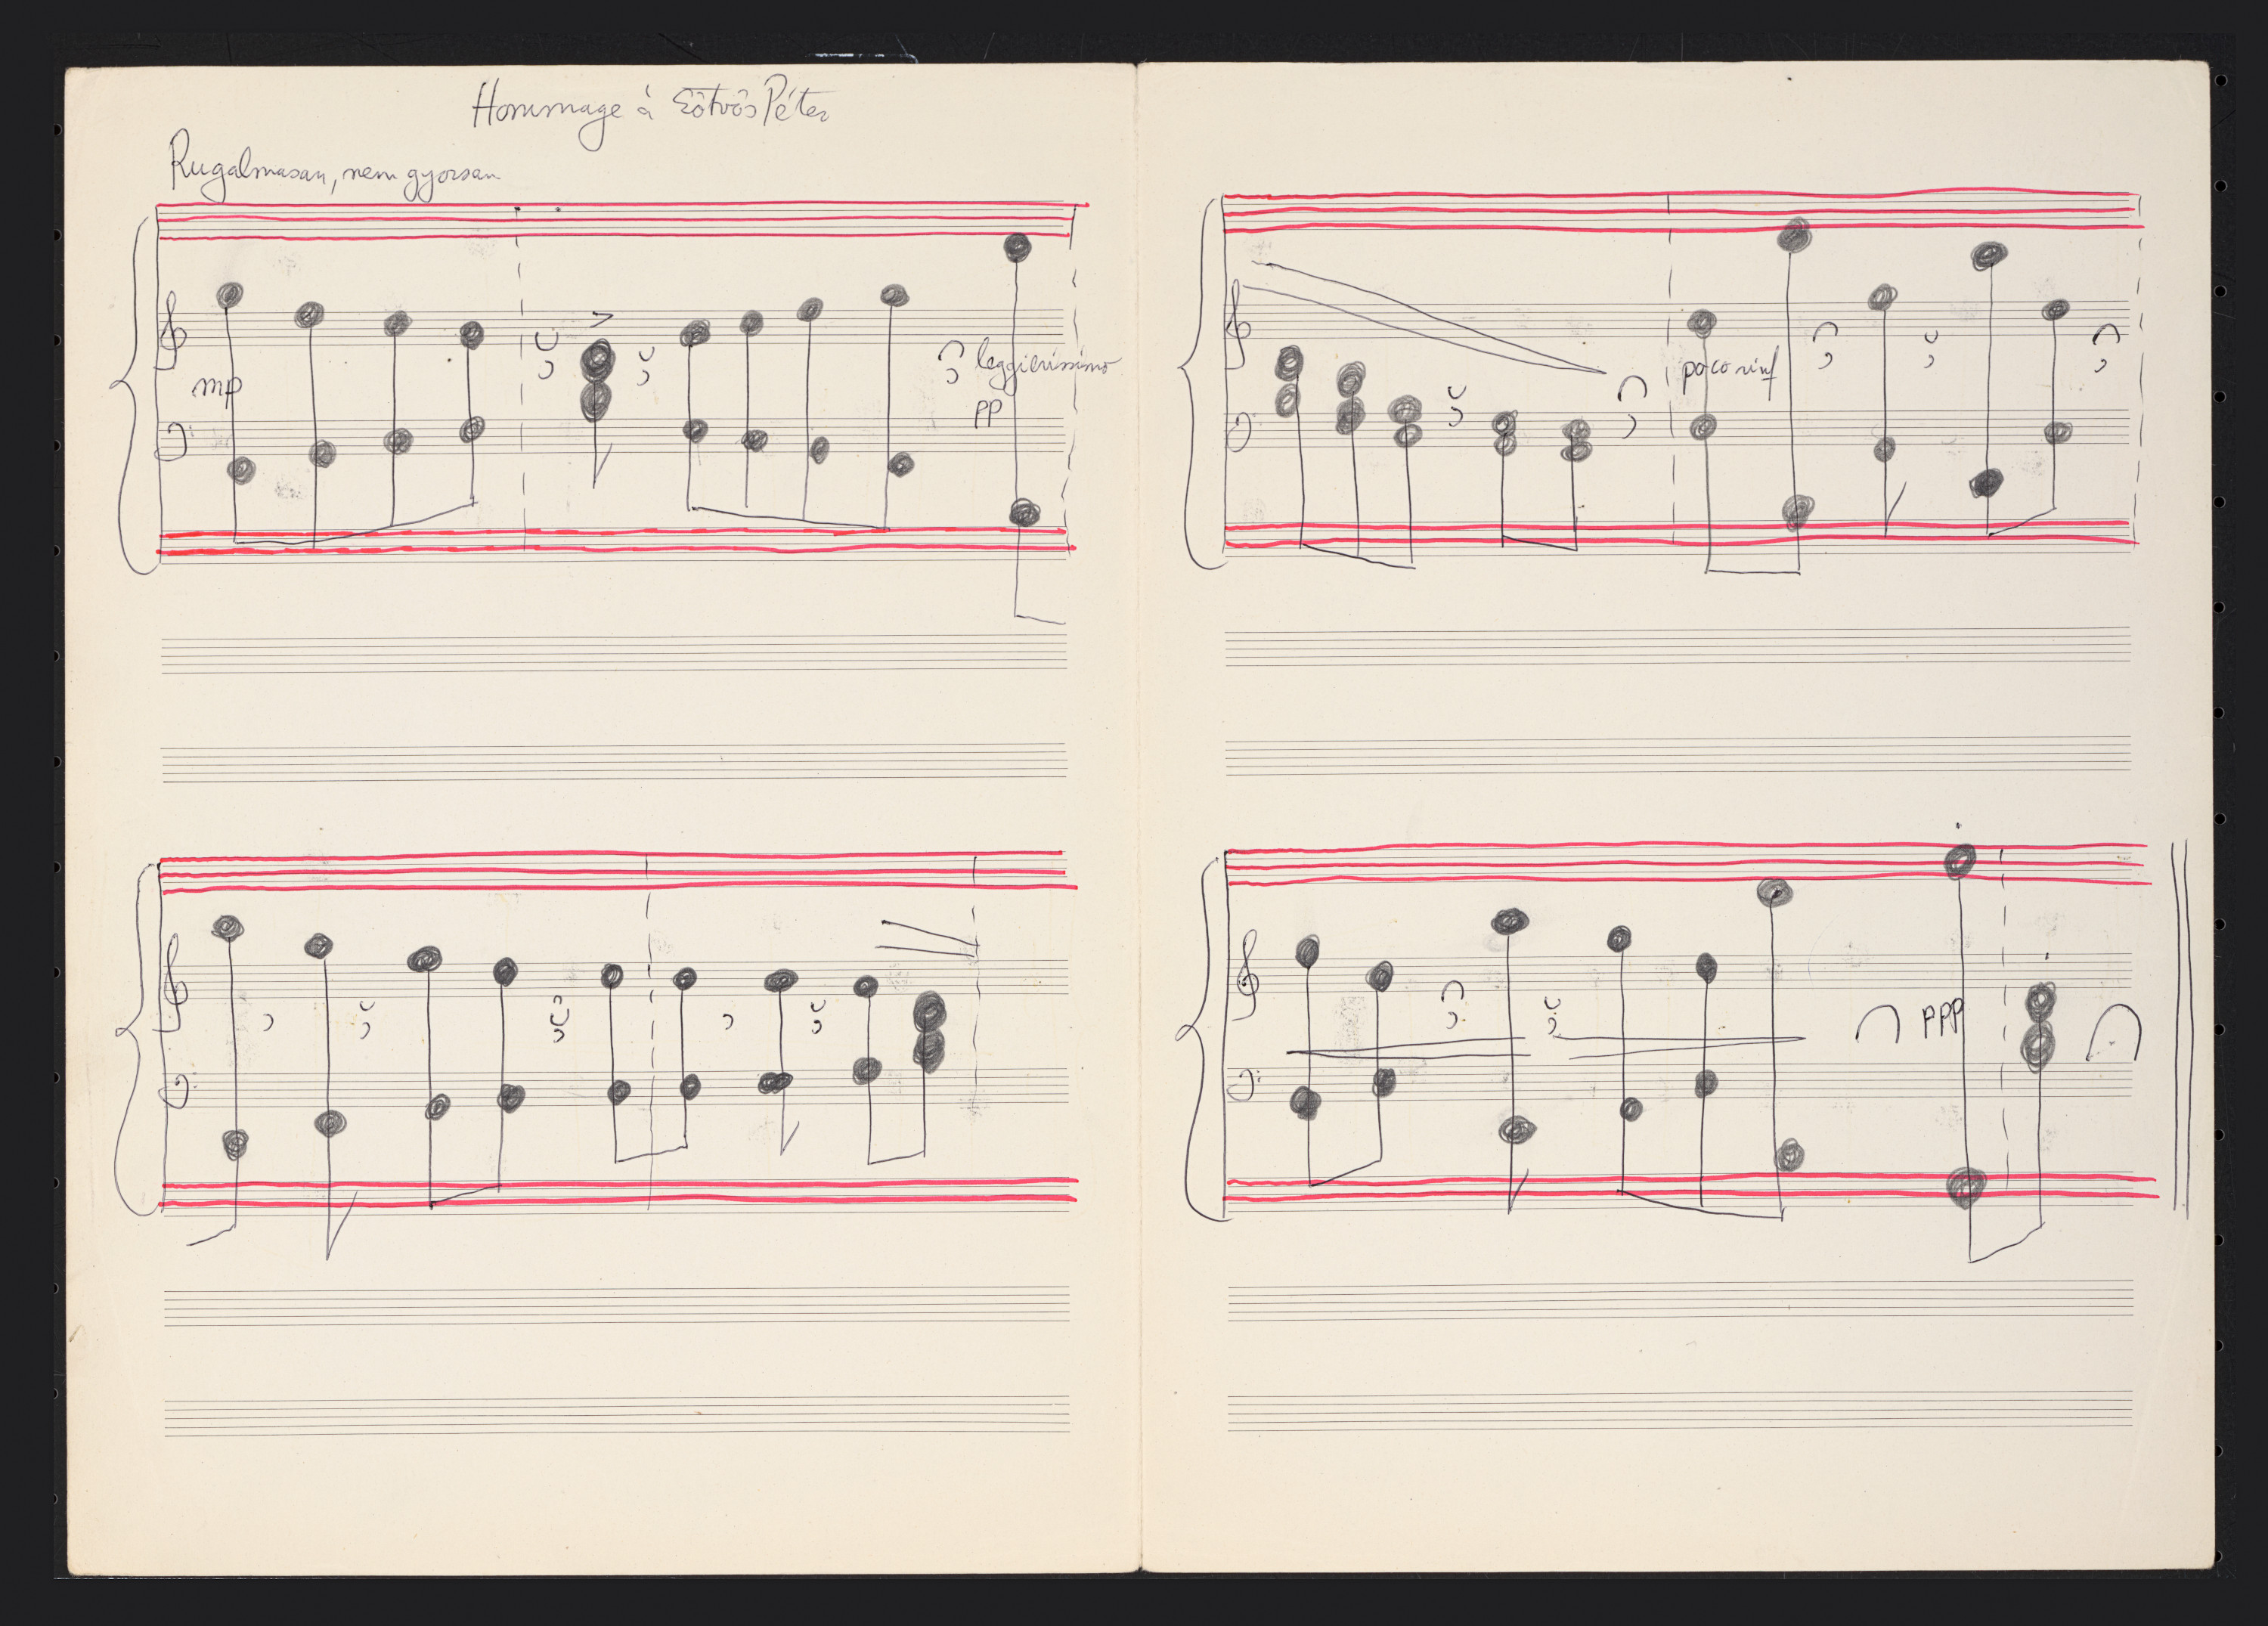 Hommage à Eötvös Péter
Rugalmasan, nem gyorsan
mp
leggierissimo
pp
poco rinf
ppp